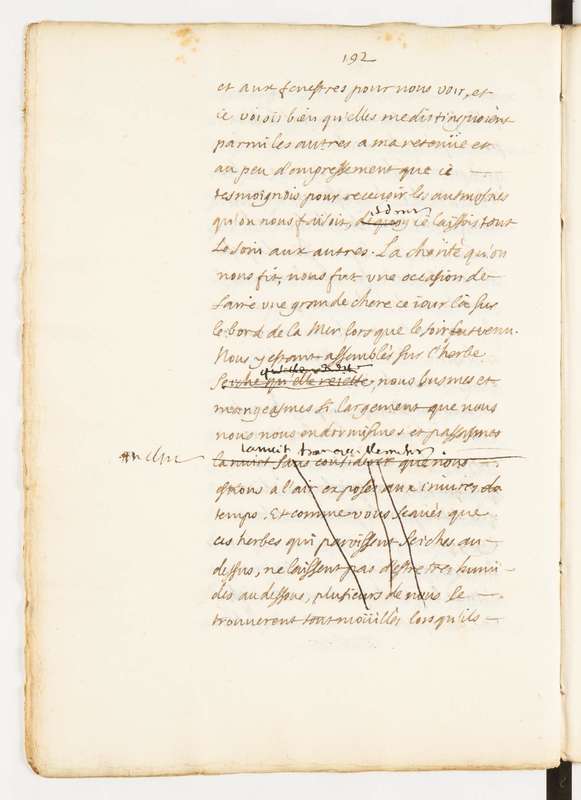 192
et aux fenestres pour nous voir, et
ie voiois bien qu'elles me distinguoient
parmi les autres a ma retenüe et
au peu d'empressement que ie
tesmoignois pour recevoir les aumosnes
qu'on nous faisoit, de quoy ie laissois tout
le soin aux autres. La charité qu'on
nous fit, nous fut une occasion de
faire une grande chere ce iour là sur
le bord de la Mer lors que le soir fut venu.
Nous y estant assemblés sur l'herbe
seiche qu'elle reiette, nous busmes et
mangeasmes si largement que nous
nous nous endormismes et passasmes
la nuit tranquillement.
la nuict sans considerer que nous
estions a l'air exposés aux iniures du
temps. Et comme vous scaués que
ces herbes qui paroissent seiches au
dessus, ne laissent pas d'estre tres humi-
des au dessous, plusieurs de nous se
trouuerent tout moüillés lors qu'ils